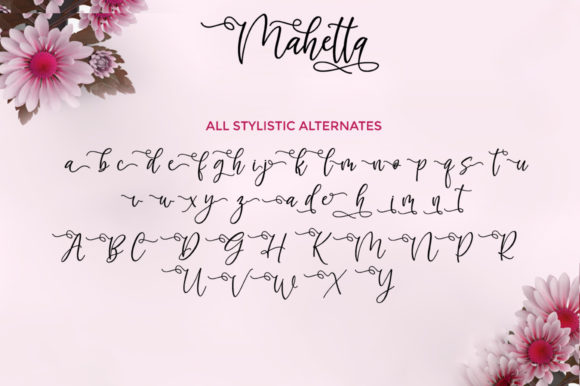 Mahetta
ALL STYLISTIC ALTERNATES
a b c d e f g h i j k l m n o p q s t u
v w x y z a d e h i m n t
A B C D G H K M N P R
U V W X Y